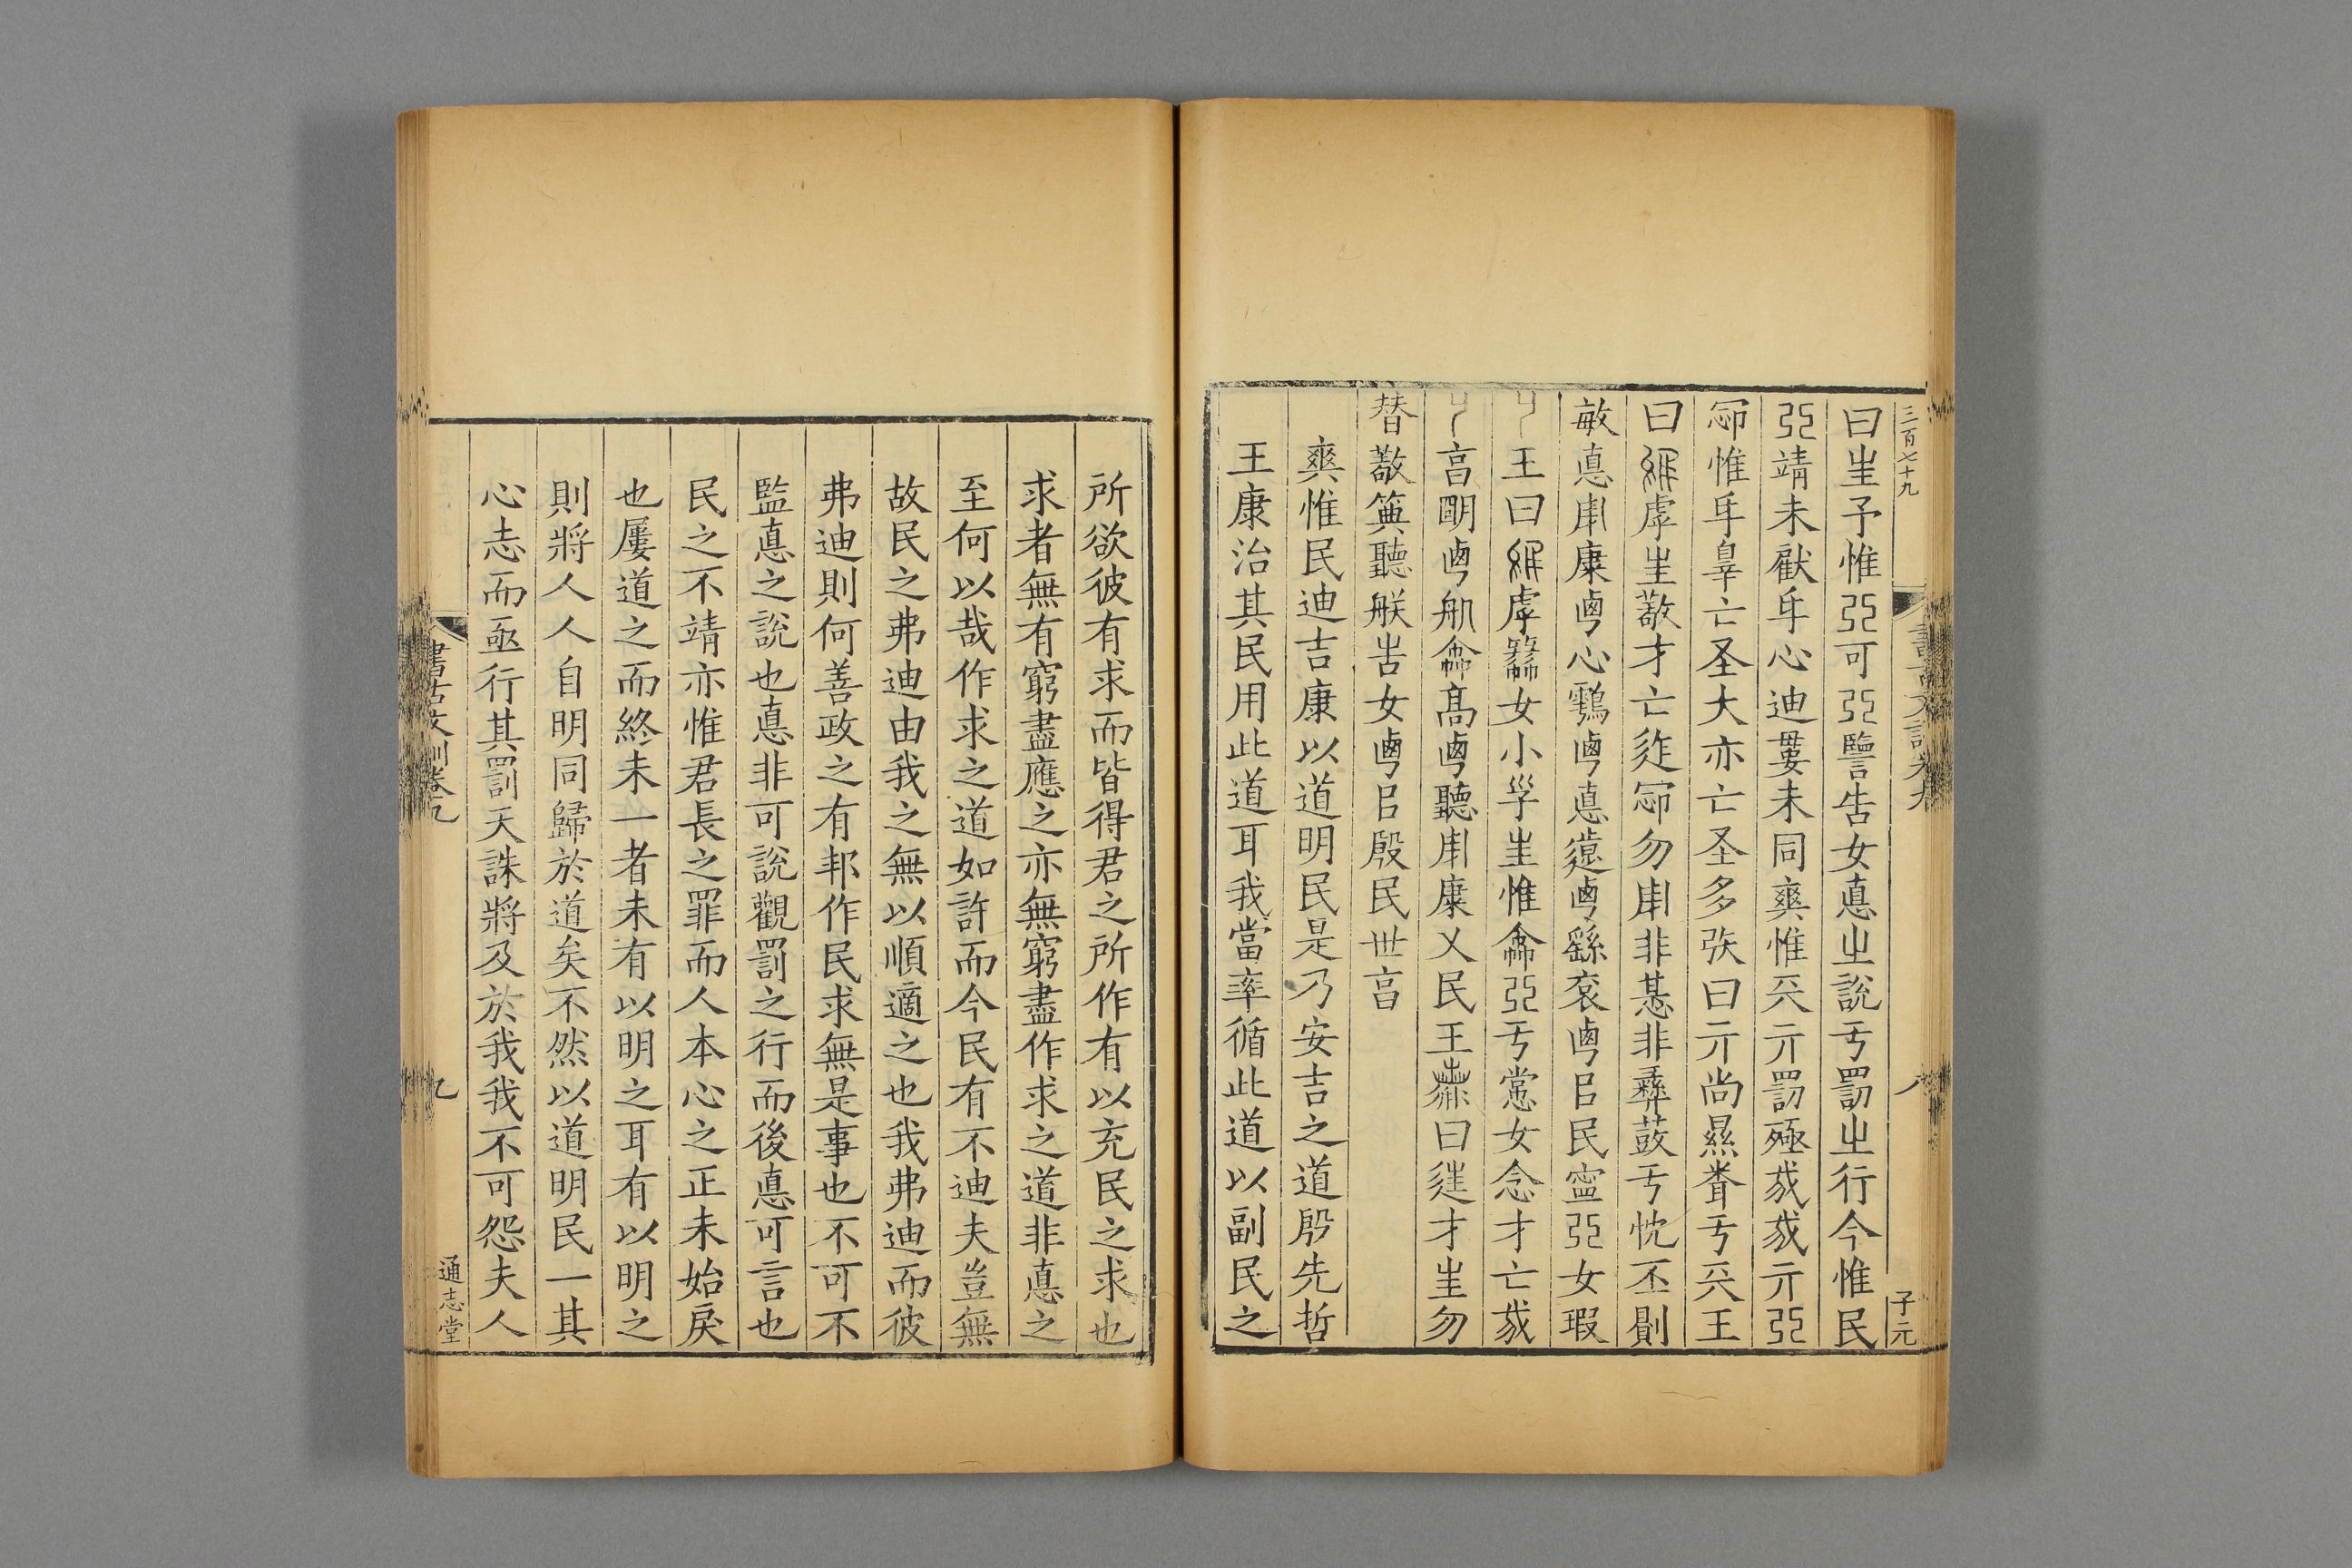 三百七十九
曰𡉚予惟亞可亞譼告女悳㞢說亏罰㞢行今惟民
亞靖未猒𠂔心迪婁未同爽惟兲亓罰殛𢦶𢦶亓亞
𠕋惟𠂔辠亡圣大亦亡圣多㢤曰亓尚㬎聋亏兲王
曰𦀚虖𡉚敬才亡𨒫𠕋勿𤰃非惎非彝𦻏亏忱丕𠟭
敏悳𤰃康𠧟心𩁹𠧟悳遠𠧟繇裦𠧟㠯民寍亞女瑕
王曰𦀚虖䌛女小孚𡉚惟龠亞亏常女念才亡𢦶
亯明𠧟𦨕龠高𠧟聽𤰃康乂民王𦿆曰𨓹才𡉚勿
替敬籅聽朕告女𠧟㠯殷民世亯
爽惟民迪吉康以道明民是乃安吉之道殷先哲
王康治其民用此道耳我當率循此道以副民之
書古文訓卷九
八
子元
所欲彼有求而皆得君之所作有以充民之求也
求者無有窮盡應之亦無窮盡作求之道非悳之
至何以哉作求之道如許而今民有不迪夫豈無
故民之弗迪由我之無以順適之也我弗迪而彼
弗迪則何善政之有邦作民求無是事也不可不
監悳之說也悳非可說觀罰之行而後悳可言也
民之不靖亦惟君長之罪而人本心之正未始戾
也屢道之而終未一者未有以明之耳有以明之
則將人人自明同歸於道矣不然以道明民一其
心志而亟行其罰天誅將及於我我不可怨夫人
書古文訓卷九
九
通志堂